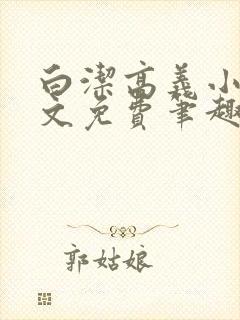 白潔高義小
文免費筆趣
郭姑娘